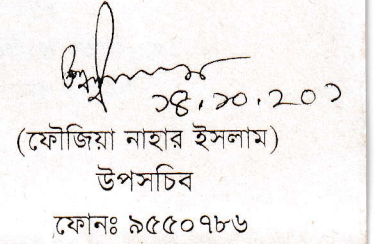 ১৪.১০.২০১
(ফৌজিয়া নাহার ইসলাম)
উপসচিব
ফোনঃ ৯৫৫০৭৮৬